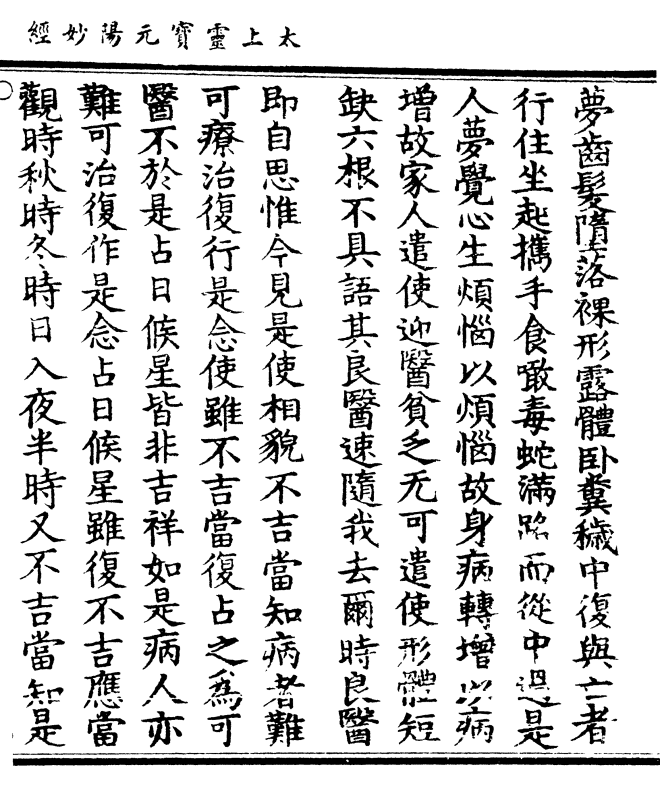 太上靈寶元陽妙經
夢齒髮隋落裸形露體卧糞穢中復與亡者
行住坐起攜手食噉毒蛇滿路而從中過是
人夢覺心生煩惱以煩惱故身病轉增以病
增故家人遣使迎醫貧乏无可遣使形體短
缺六根不具語其良醫速隨我去爾時良醫
即自思惟今見是使相貌不吉當知病者難
可療治復行是念使雖不吉當復占之為可
醫不於是占日候星皆非吉祥如是病人亦
難可治復作是念占日候星雖復不吉應當
觀時秋時冬時日入夜半時又不吉當知是